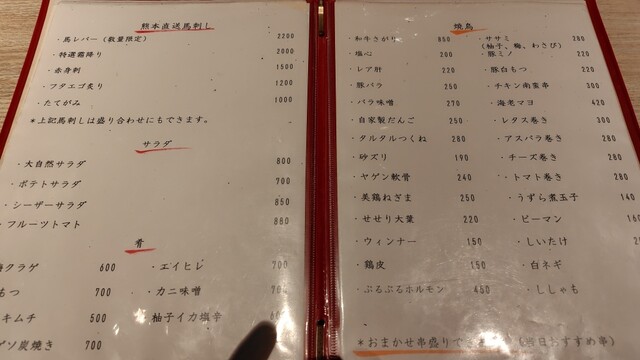 熊本直送馬刺し
・馬レバー(数量限定) 2200
・特選霜降り 2000
・赤身刺 1500
・フタエゴ炙り 1200
・たてがみ 1000
*上記馬刺しは盛り合わせにもできます。
サラダ
・大自然サラダ 800
・ポテトサラダ 700
・シーザーサラダ 850
・フルーツトマト 850
肴
クラゲ 600
・エイヒレ 700
もつ 700
・カニ味噌 700
キムチ 500
柚子イカ塩辛
ゲソ炭焼き 700
焼鳥
・和牛さがり 850
・塩心 200
・レア肝 220
・豚バラ 250
・バラ味噌 270
・自家製だんご 250
・タルタルつくね 280
・砂ズリ 190
・ヤゲン軟骨 240
・美鶏ねぎま 250
・せせり大葉 220
・ウィンナー 150
・鶏皮 150
・ぷるぷるホルモン 450
・ササミ 280
(柚子、梅、わさび)
・豚ミノ 220
・豚白もつ 220
・チキン南蛮串 300
・海老マヨ 420
・レタス巻き 300
・アスパラ巻き 280
・チーズ巻き 280
・トマト巻き 280
・うずら煮玉子 140
・ピーマン
・しいたけ
・白ネギ
・ししゃも
*おまかせ串盛りでき
日おすすめ串)